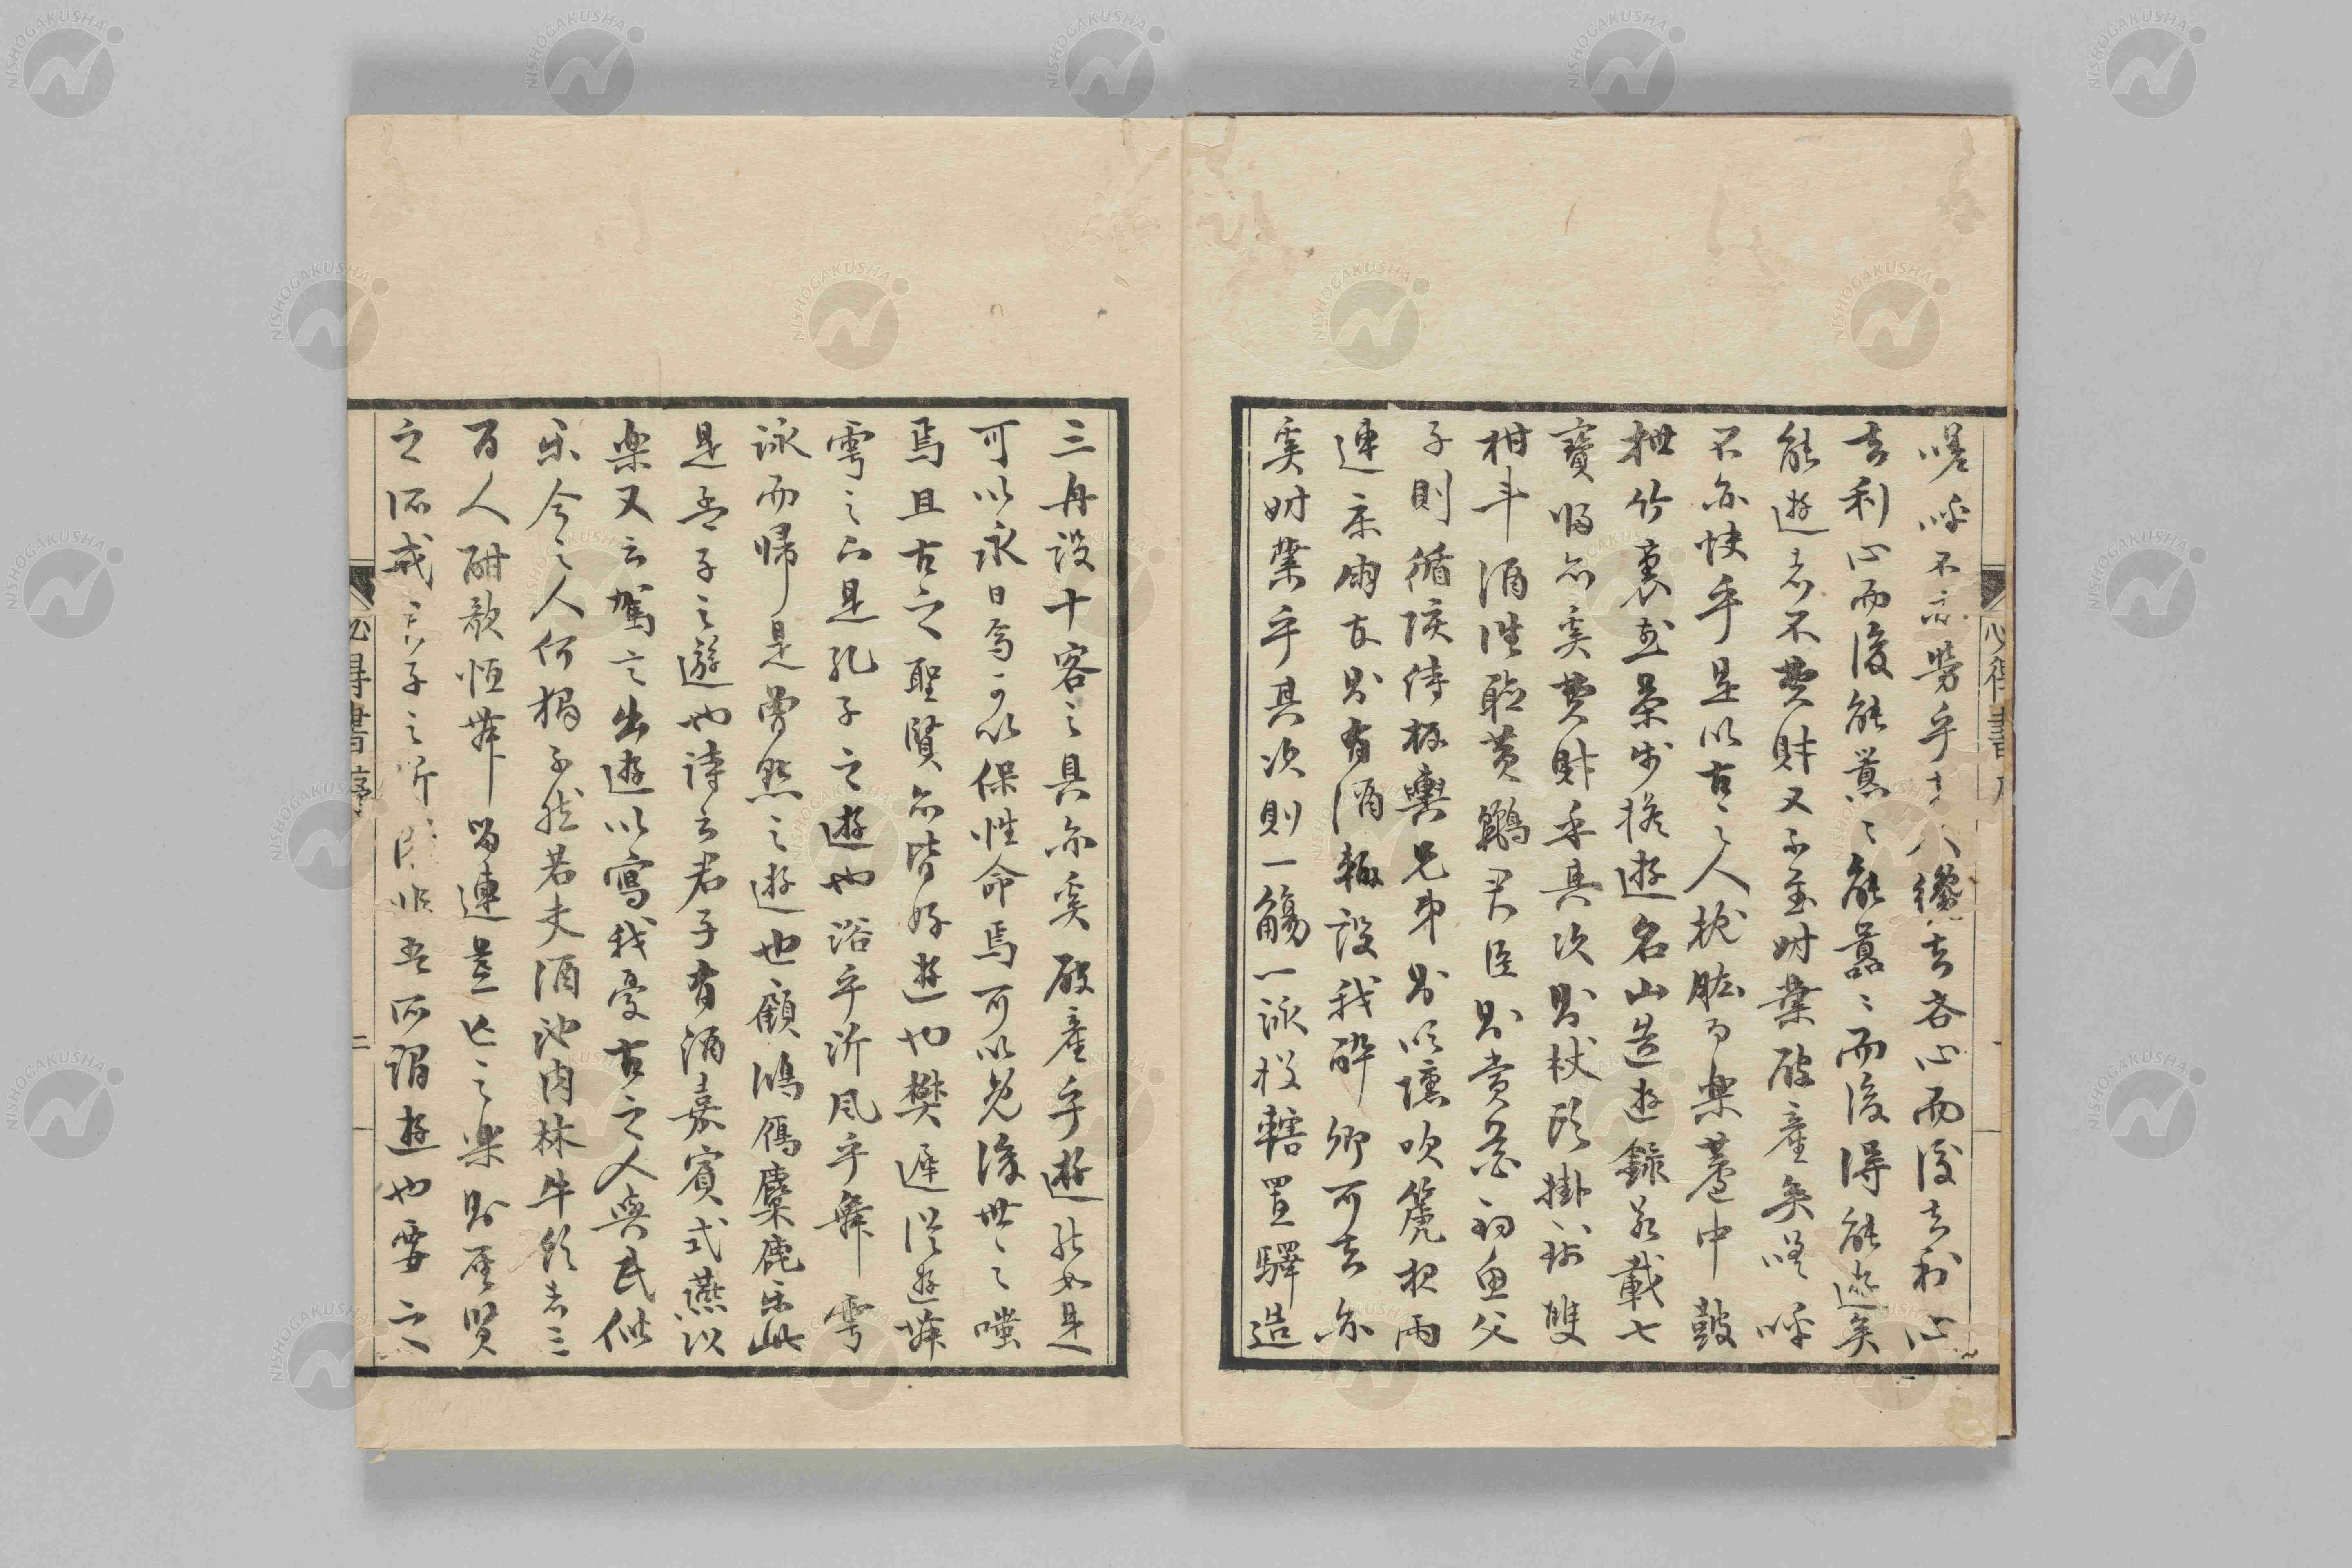 嗟呼不亦勞乎 人纔去吝心而後去利心
去利心而後能囂〻能囂〻而後得能遊矣
能遊者不費財又不至財業破產矣嗟呼
不亦快乎是以古之人枕肱而樂簞中鼓
竹裏 名山造遊錄 載七
寶 亦奚費財乎其次則杖頭掛 雙
柑斗酒往聽黃鸝君臣則賞花釣魚父
子則循陔侍板輿兄弟則以壎吹篪故雨
連 雨友則有酒輒設我醉卿可去亦
奚財業乎其次則一觴一詠投轄置驛造
三舟設十客之具亦奚破產乎遊能如是
可以永日焉可以保性命焉可以免後世之嗤
焉且古之聖賢亦皆好遊也樊遲從遊舞
雩之下是孔子之遊也浴乎沂風乎舞雩
詠而歸是曾點之遊也顧鴻鴈麋鹿樂此
是孟子之遊也詩云君子有酒嘉賓式燕以
樂又云駕言出遊以寫我憂古之人與民偕
樂今之人何獨不然若夫酒池肉林牛飲者三
百人酣歌恒舞留連荒亡之樂則聖賢
之所戒 子之所 非吾所謂遊也要之
必得書 序
二
NISHOGAKUSHA